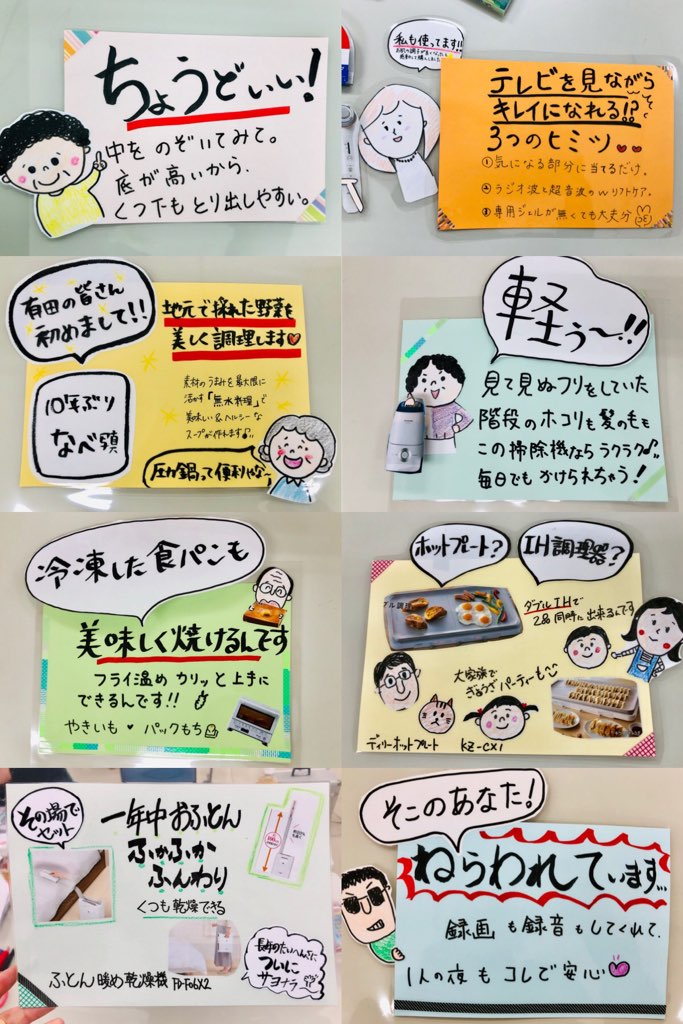 ちょうどいい!
中をのぞいてみて。
底が高いから、
くつ下もとり出しやすい。
私も使ってます!!
テレビを見ながら
キレイになれる!?
3つのヒミツ
①気になる部分に当てるだけ。
②ラジオ波と超音波のWリフトケア。
③専用ジェルが無くても大丈夫
有田の皆さん
初めまして!!
地元で採れた野菜を
美しく調理します
10年ぶり
なべ
素材のうまみを最大限に
活かす「無水料理」で
美味しい&ヘルシーな
スープが作れます♪
圧力鍋って便利やな〜
軽ぅ〜!!
見て見ぬフリをしていた
階段のホコリも髪の毛も
この掃除機ならラクラク♪
毎日でもかけられちゃう!
冷凍した食パンも
美味しく焼けるんです
フライ温め カリッと上手に
できるんです!!
やきいも ♥ パックもち
ホットプレート?
IH調理器?
ダブルIHで
2品同時に出来るんです
大家族で
ぎょうざパーティーも
デイリーホットプレート KZ-CX1
その場で
セット
一年中おふとん
ふかふか
ふんわり
くつも乾燥できる
ふとん暖め乾燥機 FD-F06X2
ついに
サヨナラ
そこのあなた!
ねらわれています…
録画も録音もしてくれて、
1人の夜もコレで安心